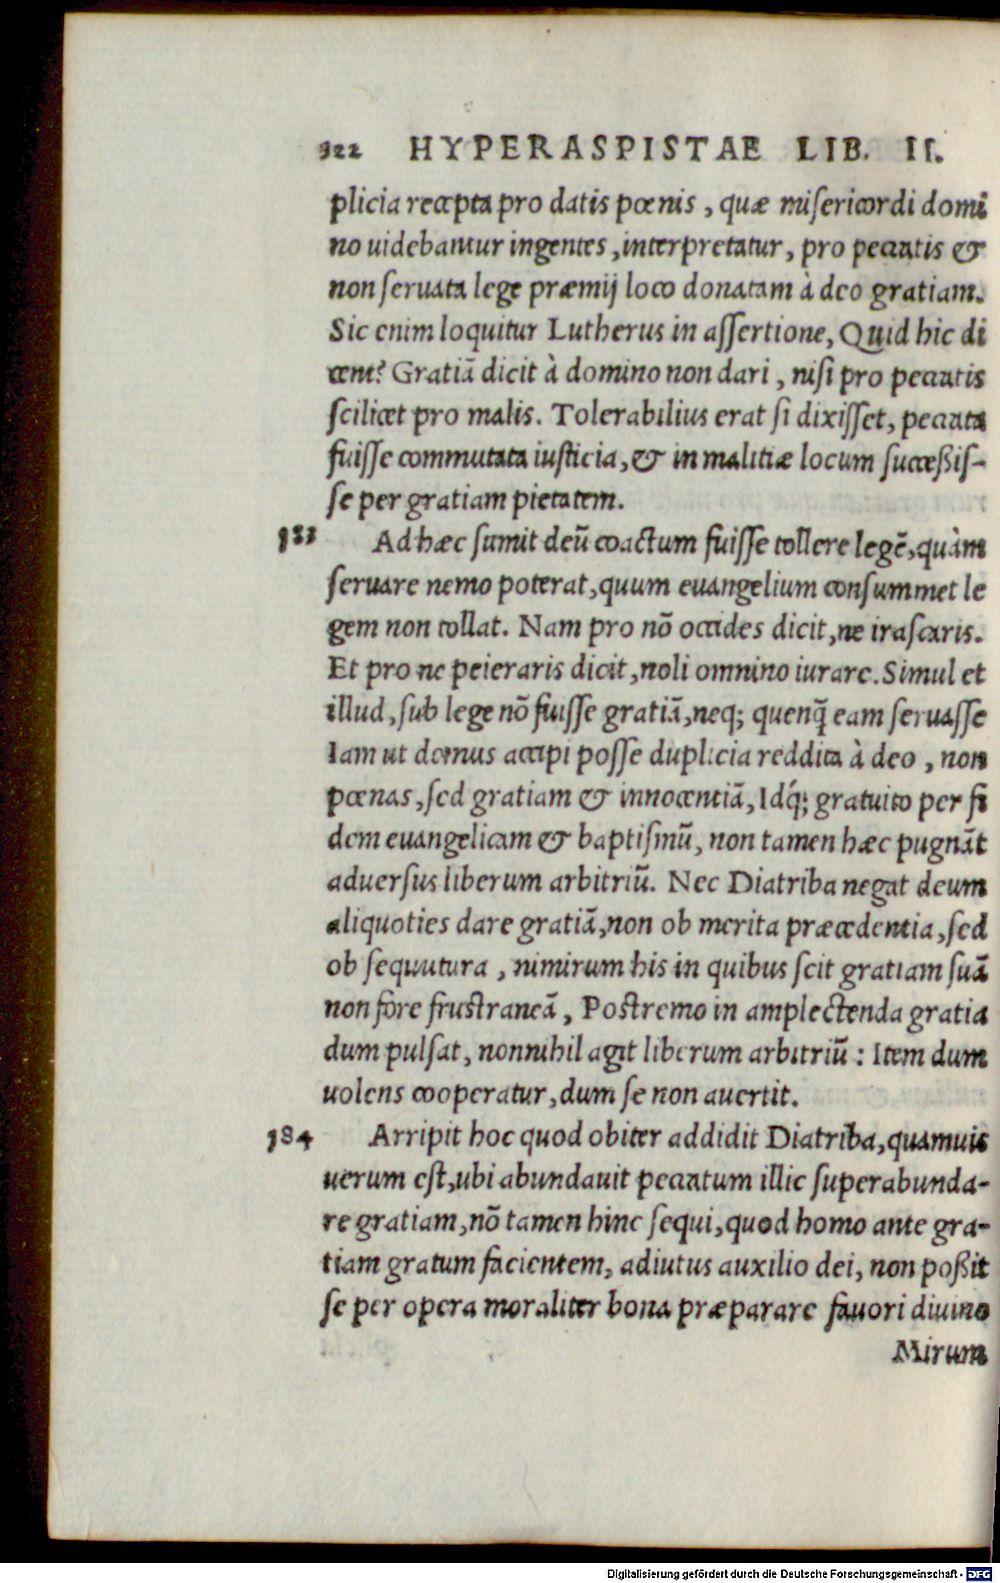 322 HYPERASPISTAE LIB. II.
plicia recepta pro datis pœnis, quæ misericordi domi
no uidebantur ingentes, interpretatur, pro peccatis &
non seruata lege præmij loco donatam à deo gratiam.
Sic enim loquitur Lutherus in assertione, Quid hic di
cent? Gratiā dicit à domino non dari, nisi pro peccatis
scilicet pro malis. Tolerabilius erat si dixisset, peccata
fuisse commutata iusticia, & in malitiæ locum succeßis-
se per gratiam pietatem.
Ad hæc sumit deū coactum fuisse tollere legē, quàm
seruare nemo poterat, quum euangelium consummet le
gem non tollat. Nam pro nō occides dicit, ne irascaris.
Et pro ne peieraris dicit, noli omnino iurare. Simul et
illud, sub lege nō fuisse gratiā, neq; quenq̃ eam seruasse
Iam ut demus accipi posse duplicia reddita à deo, non
pœnas, sed gratiam & innocentiā, Idq́; gratuito per fi
dem euangelicam & baptismū, non tamen hæc pugnāt
aduersus liberum arbitriū. Nec Diatriba negat deum
aliquoties dare gratiā, non ob merita præcedentia, sed
ob sequutura, nimirum his in quibus scit gratiam suā
non fore frustraneā, Postremo in amplectenda gratia
dum pulsat, nonnihil agit liberum arbitriū: Item dum
uolens cooperatur, dum se non auertit.
184 Arripit hoc quod obiter addidit Diatriba, quamuis
uerum est, ubi abundauit peccatum illic superabunda-
re gratiam, nō tamen hinc sequi, quod homo ante gra-
tiam gratum facientem, adiutus auxilio dei, non poßit
se per opera moraliter bona præparare fauori diuino
Mirum
Digitalisierung gefördert durch die Deutsche Forschungsgemeinschaft - DFG